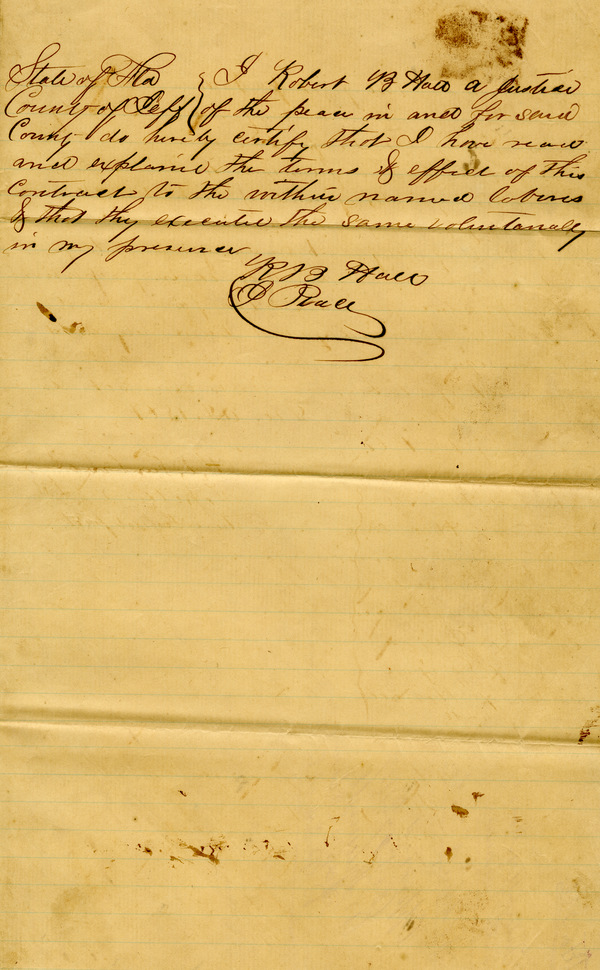 State of Fla } I Robert B Hall a Justice
County of Jeff } of the peace in and for said
County do hereby certify that I have read
and explained the terms & effect of this
contract to the within named laborers
& that they executed the same voluntarially
in my presence
R B Hall
J Peace